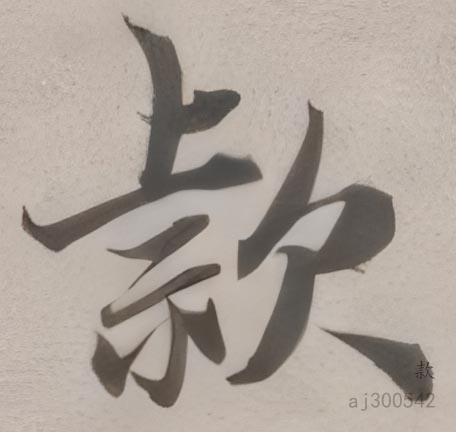 款
款
aj300542